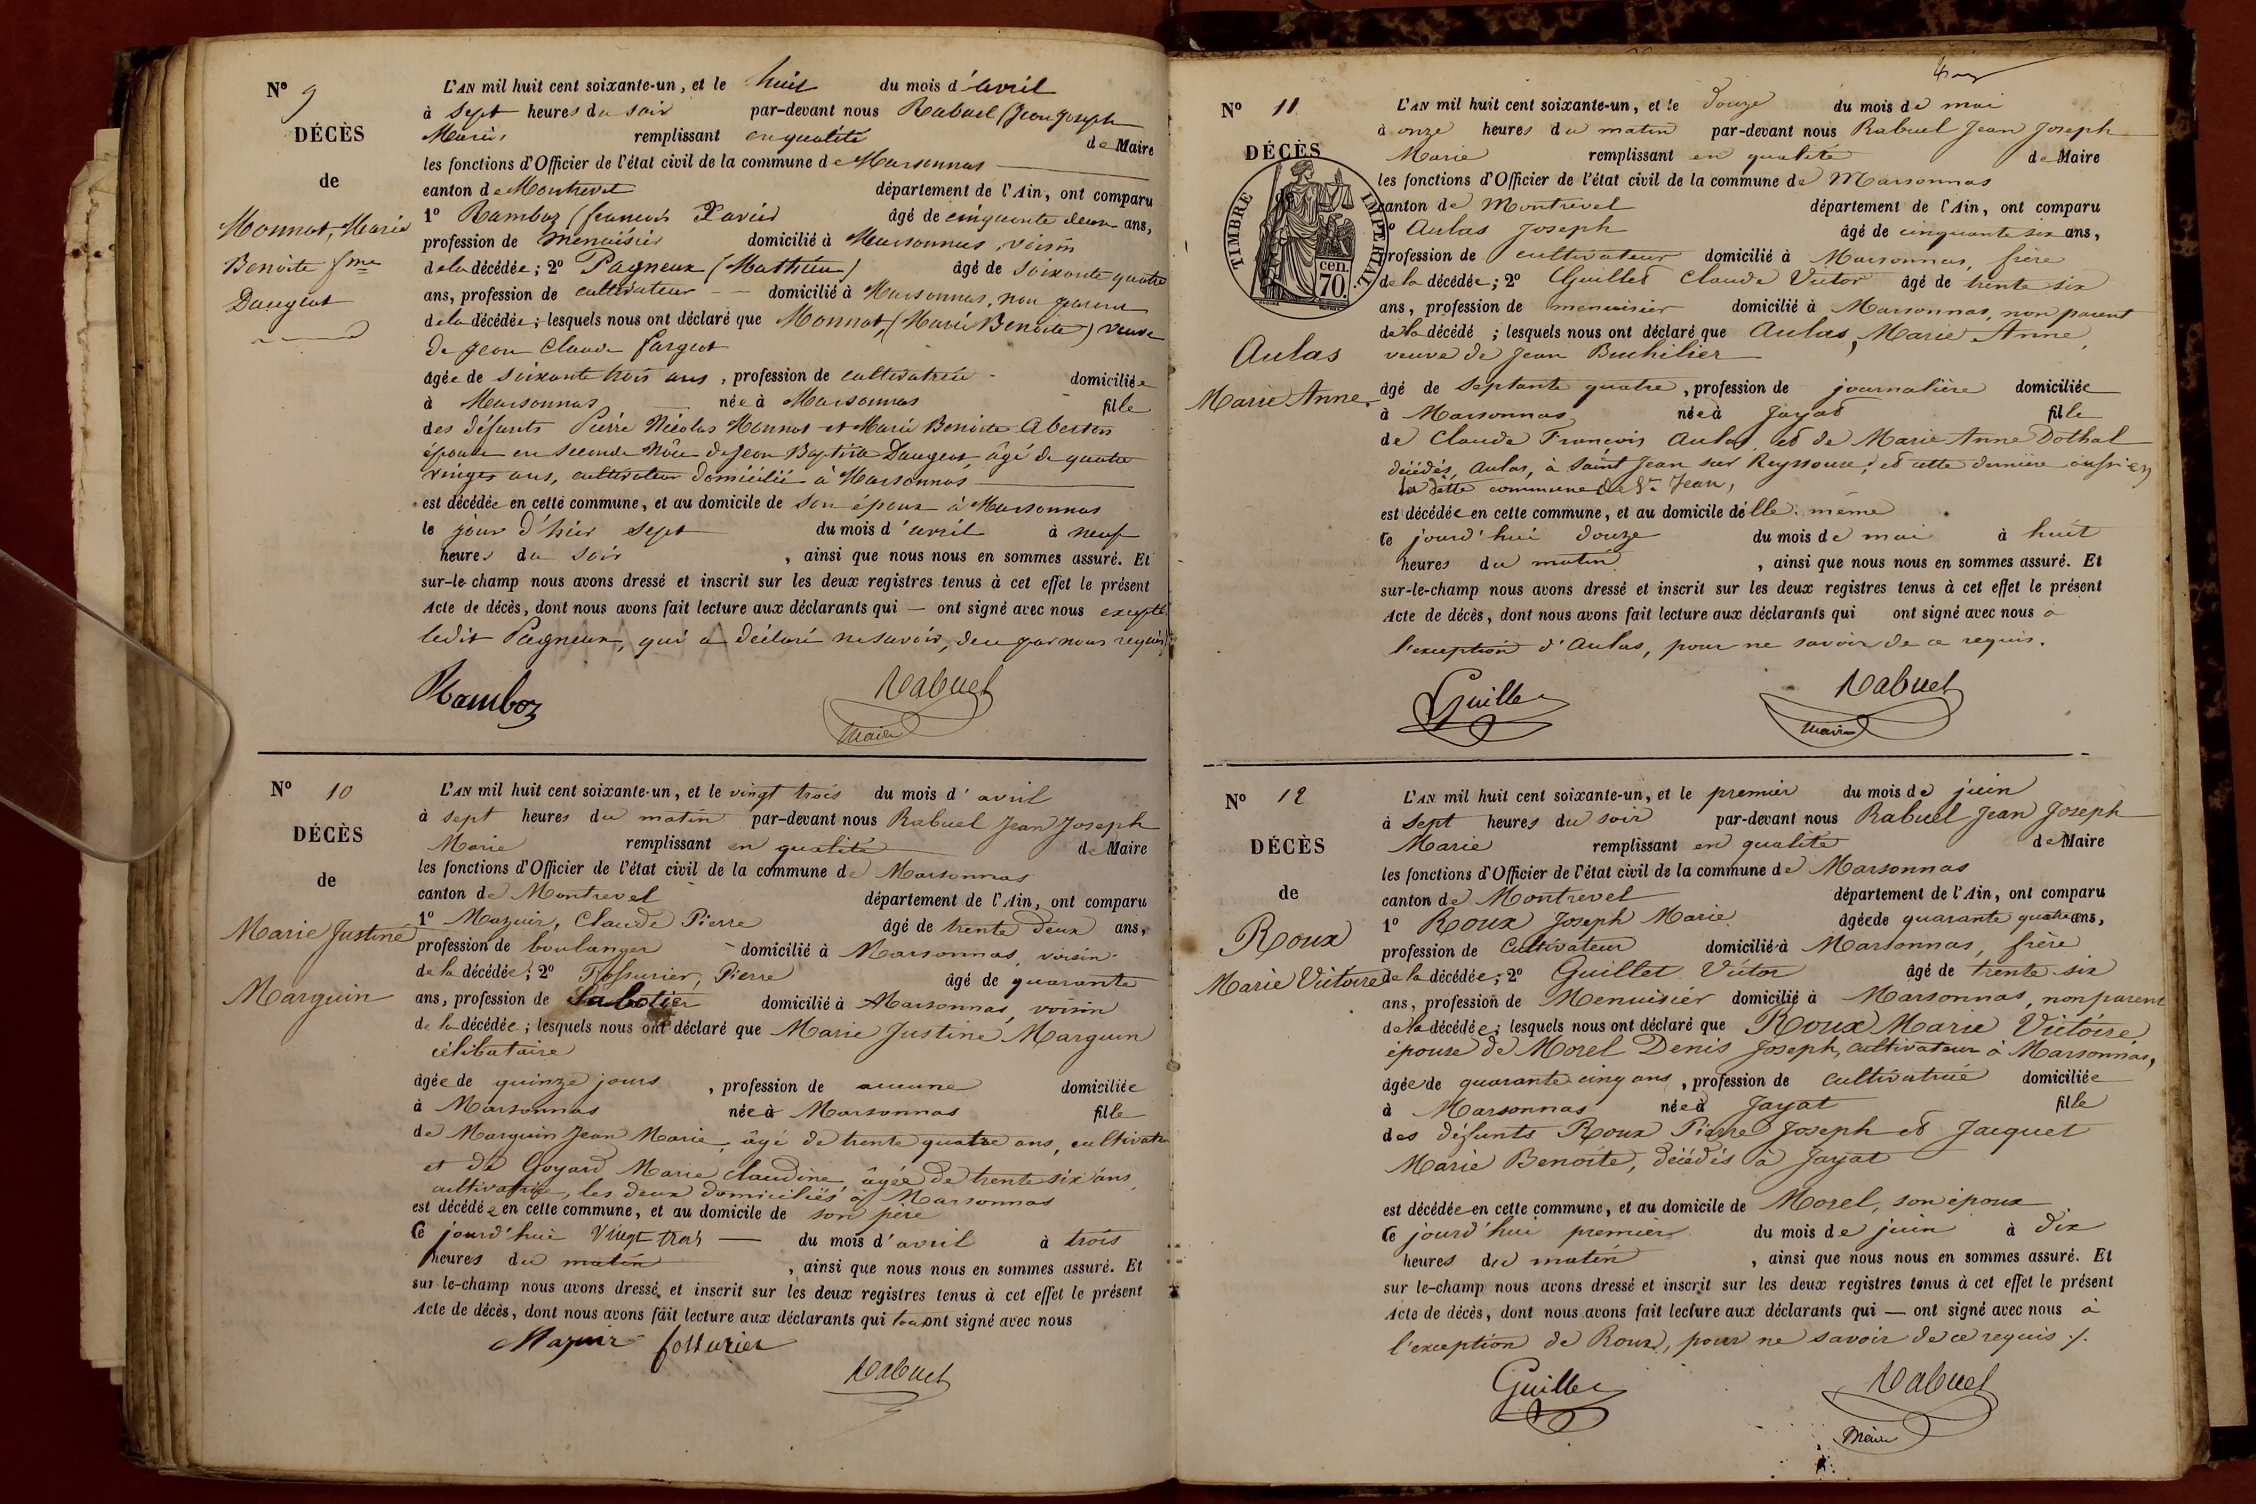 Nº 9
DÉCÈS
de
Monnot, Marie
Benoite fme
Daugeot
L'AN mil huit cent soixante-un, et le huit du mois d'avril
à sept heures du soir par-devant nous Rabuel (Jean Joseph
Marie remplissant en qualité de Maire
les fonctions d'Officier de l'état civil de la commune de Marsonnas
canton de Montrevel département de l'Ain, ont comparu
1º Ramboz (françois Xavier âgé de cinquante deux ans,
profession de menuisier domicilié à Marsonnas, voisin
de la décédée; 2º Pagneux (Mathieu) âgé de soixante quatre
ans, profession de cultivateur domicilié à Marsonnas, non parent
de la décédée; lesquels nous ont déclaré que Monnot (Marie Benoite) veuve
de Jean Claude
âgée de soixante trois ans, profession de cultivatrice domiciliée
à Marsonnas née à Marsonnas fille
des défunts Pierre Nicolas Monnot et Marie Benoite
épouse en seconde Nôce de Jean Baptiste Daugeot, âgé de quatre
vingts ans, cultivateur domicilié à Marsonnas
est décédée en cette commune, et au domicile de son époux à Marsonnas
le jour d'hier sept du mois d'avril à neuf
heures du soir, ainsi que nous nous en sommes assuré. Et
sur-le-champ nous avons dressé et inscrit sur les deux registres tenus à cet effet le présent
Acte de décès, dont nous avons fait lecture aux déclarants qui — ont signé avec nous excepté
ledit Pagneux, qui a déclaré ne savoir, de ce par nous requis
Ramboz Rabuel
Maire
Nº 10
DÉCÈS
de
Marie Justine
Marguin
L'AN mil huit cent soixante-un, et le vingt trois du mois d'avril
à sept heures du matin par-devant nous Rabuel Jean Joseph
Marie remplissant en qualité de Maire
les fonctions d'Officier de l'état civil de la commune de Marsonnas
canton de Montrevel département de l'Ain, ont comparu
1º Mazuir, Claude Pierre âgé de trente deux ans,
profession de boulanger domicilié à Marsonnas, voisin
de la décédée; 2º Fossurier, Pierre âgé de quarante
ans, profession de Sabotier domicilié à Marsonnas, voisin
de la décédée; lesquels nous ont déclaré que Marie Justine Marguin
célibataire
âgée de quinze jours, profession de aucune domiciliée
à Marsonnas née à Marsonnas fille
de Marguin Jean Marie, âgé de trente quatre ans, cultivateur
et de Goyard Marie Claudine, âgée de trente six ans
cultivatrice, les deux domiciliés à Marsonnas
est décédée en cette commune, et au domicile de son père
Ce jourd'hui Vingt trois du mois d'avril à trois
heures du matin, ainsi que nous nous en sommes assuré. Et
sur le-champ nous avons dressé et inscrit sur les deux registres tenus à cet effet le présent
Acte de décès, dont nous avons fait lecture aux déclarants qui tous ont signé avec nous
Mazuir fossurier
Rabuel
Nº 11
DÉCÈS
de
TIMBRE IMPÉRIAL
70 cen.
Aulas
Marie Anne
L'AN mil huit cent soixante-un, et le douze du mois de mai
à onze heures du matin par-devant nous Rabuel Jean Joseph
Marie remplissant en qualité de Maire
les fonctions d'Officier de l'état civil de la commune de Marsonnas
canton de Montrevel département de l'Ain, ont comparu
1º Aulas Joseph âgé de cinquante six ans,
profession de cultivateur domicilié à Marsonnas, frère
de la décédée; 2º Guillet Claude Victor âgé de trente six
ans, profession de menuisier domicilié à Marsonnas, non parent
de la décédé; lesquels nous ont déclaré que Aulas, Marie Anne,
veuve de Jean Buchilier
âgé de septante quatre, profession de journalière domiciliée
à Marsonnas née à Jayat fille
de Claude François Aulas et de Marie Anne Dothal
décédés, Aulas, à Saint Jean sur Reyssouse, et cette dernière aussi en
la dite commune de St Jean,
est décédée en cette commune, et au domicile d'elle même
Ce jourd'hui douze du mois de mai à huit
heures du matin, ainsi que nous nous en sommes assuré. Et
sur-le-champ nous avons dressé et inscrit sur les deux registres tenus à cet effet le présent
Acte de décès, dont nous avons fait lecture aux déclarants qui ont signé avec nous à
l'exception d'Aulas, pour ne savoir de ce requis.
Guillet Rabuel
Maire
Nº 12
DÉCÈS
de
Roux
Marie Victoire
L'AN mil huit cent soixante-un, et le premier du mois de juin
à sept heures du soir par-devant nous Rabuel Jean Joseph
Marie remplissant en qualité de Maire
les fonctions d'Officier de l'état civil de la commune de Marsonnas
canton de Montrevel département de l'Ain, ont comparu
1º Roux Joseph Marie âgée de quarante quatre ans,
profession de Cultivateur domicilié à Marsonnas, frère
de la décédée; 2º Guillet Victor âgé de trente six
ans, profession de Menuisier domicilié à Marsonnas, non parent
de la décédée; lesquels nous ont déclaré que Roux Marie Victoire
épouse de Morel Denis Joseph, cultivateur à Marsonnas,
âgée de quarante cinq ans, profession de cultivatrice domiciliée
à Marsonnas née à Jayat fille
des défunts Roux Pierre Joseph et Jacquet
Marie Benoite, décédés à Jayat
est décédée en cette commune, et au domicile de Morel, son époux
Ce jourd'hui premier du mois de juin à dix
heures du matin, ainsi que nous nous en sommes assuré. Et
sur le-champ nous avons dressé et inscrit sur les deux registres tenus à cet effet le présent
Acte de décès, dont nous avons fait lecture aux déclarants qui — ont signé avec nous à
l'exception de Roux, pour ne savoir de ce requis ./.
Guillet Rabuel
Maire